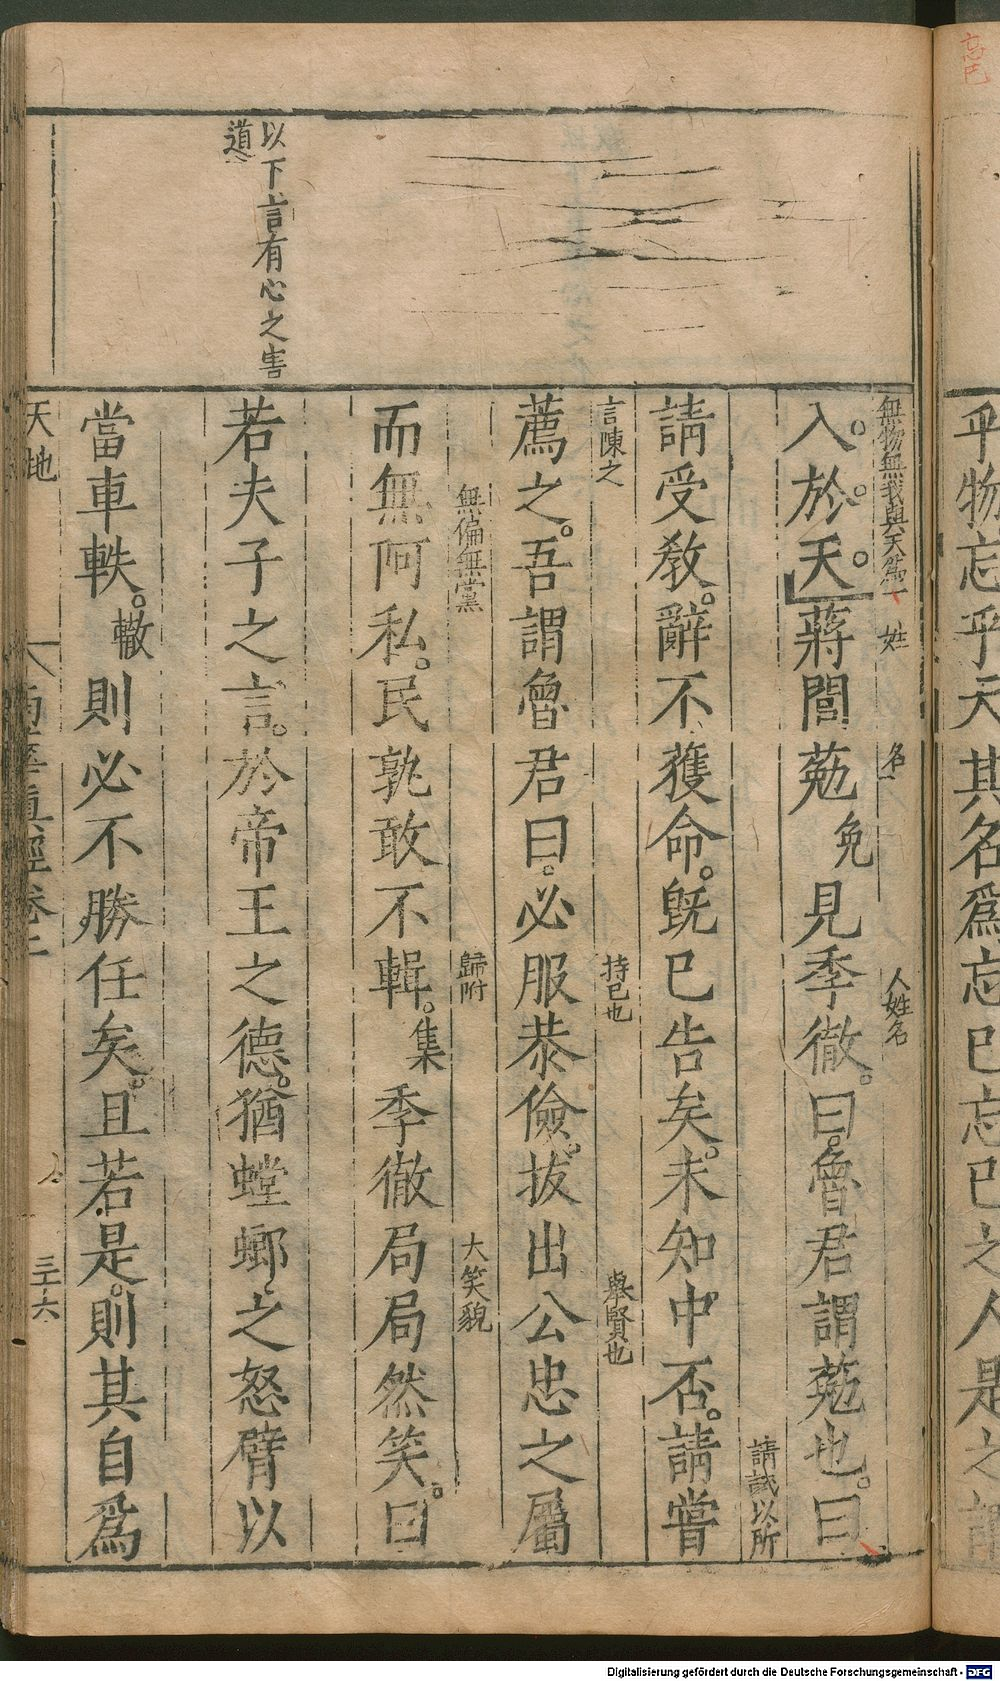 忘己
乎物忘乎天其名爲忘已忘已之人是之謂
無物無我與天爲一
姓
名
人姓名
入於天蔣閭葂免見季徹曰魯君謂葂也曰
請試以所
請受教辭不獲命旣已告矣未知中否請嘗
言陳之
持已也
舉賢也
薦之吾謂魯君曰必服恭儉拔出公忠之屬
無偏無黨
歸附
大笑貌
而無阿私民孰敢不輯集季徹局局然笑曰
以下言有心之害
道
若夫子之言於帝王之德猶螳螂之怒臂以
當車軼轍則必不勝任矣且若是則其自爲
天地
南華眞經卷二
三十六
Digitalisierung gefördert durch die Deutsche Forschungsgemeinschaft - DFG